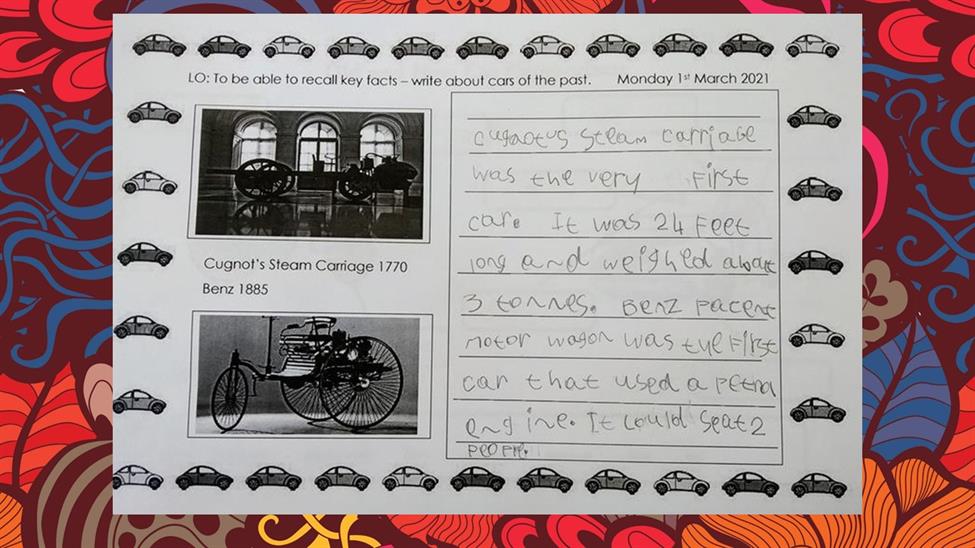 LO: To be able to recall key facts – write about cars of the past. Monday 1st March 2021
Cugnot's Steam Carriage 1770
Benz 1885
cugnotus steam carriage
was the very first
car. It was 24 Feet
long and weighed about
3 tonnes. Benz pacent
motor wagon was the First
car that used a petrol
engine. It could seat 2
people.